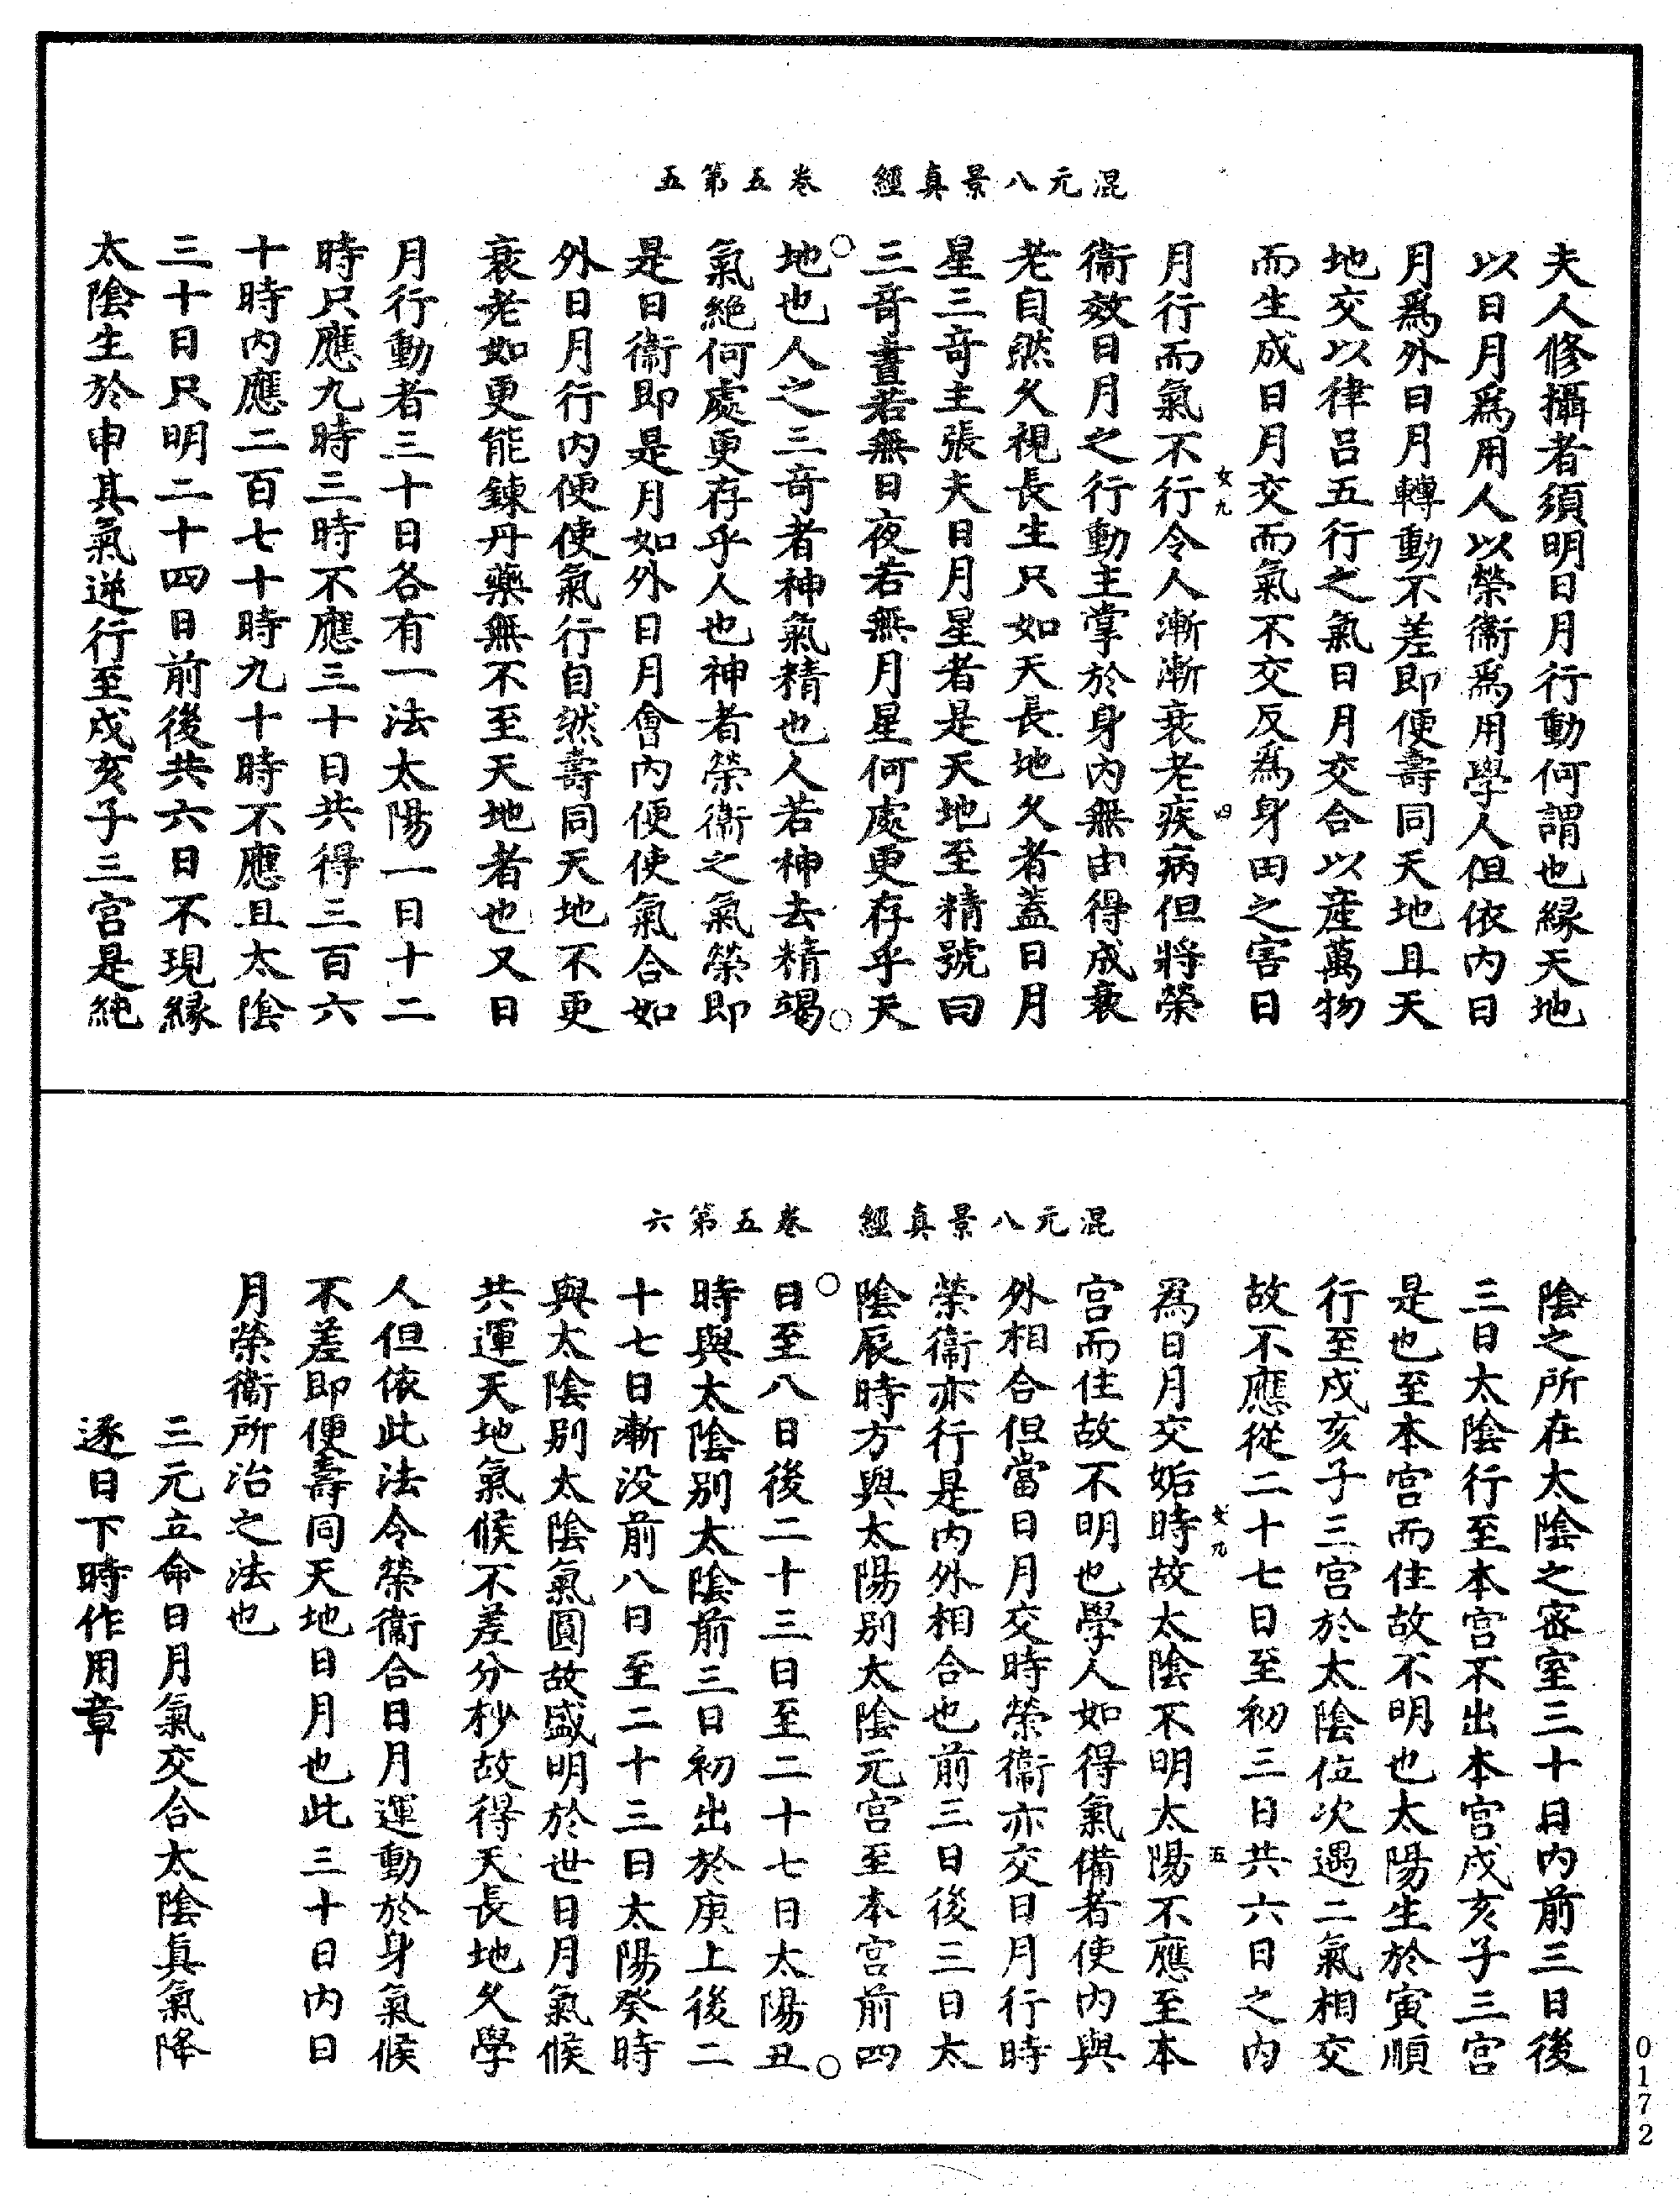 混元八景真經　卷五第五
夫人修攝者須明日月行動何謂也緣天地
以日月爲用人以榮衛爲用學人但依内日
月爲外日月轉動不差即便壽同天地且天
地交以律吕五行之氣日月交合以産萬物
而生成日月交而氣不交反爲身田之害日
女九　四
月行而氣不行令人漸漸衰老疾病但將榮
衛效日月之行動主掌於身内無由得成衰
老自然久視長生只如天長地久者蓋日月
星三竒主張夫日月星者是天地至精號曰
三竒晝若無日夜若無月星何處更存乎天
地也人之三竒者神氣精也人若神去精竭
氣絶何處更存乎人也神者榮衛之氣榮即
是日衛即是月如外日月會内便使氣合如
外日月行内便使氣行自然壽同天地不更
衰老如更能鍊丹藥無不至天地者也又日
月行動者三十日各有一法太陽一日十二
時只應九時三時不應三十日共得三百六
十時内應二百七十時九十時不應且太陰
三十日只明二十四日前後共六日不現緣
太陰生於申其氣逆行至戍亥子三宫是純
混元八景真經　卷五第六
陰之所在太陰之密室三十日内前三日後
三日太陰行至本宫不出本宫戍亥子三宫
是也至本宫而住故不明也太陽生於寅順
行至戍亥子三宫於太陰位次遇二氣相交
故不應從二十七日至初三日共六日之内
女九　五
爲日月交姤時故太陰不明太陽不應至本
宫而住故不明也學人如得氣備者使内與
外相合但當日月交時榮衛亦交日月行時
榮衛亦行是内外相合也前三日後三日太
陰辰時方與太陽别太陰元宫至本宫前四
日至八日後二十三日至二十七日太陽丑
時與太陰别太陰前三日初出於庚上後二
十七日漸没前八日至二十三日太陽癸時
與太陰别太陰氣圓故盛明於世日月氣候
共運天地氣候不差分杪故得天長地久學
人但依此法令榮衛合日月運動於身氣候
不差即便壽同天地日月也此三十日内日
月榮衛所治之法也
三元立命日月氣交合太陰真氣降
逐日下時作用章
0172